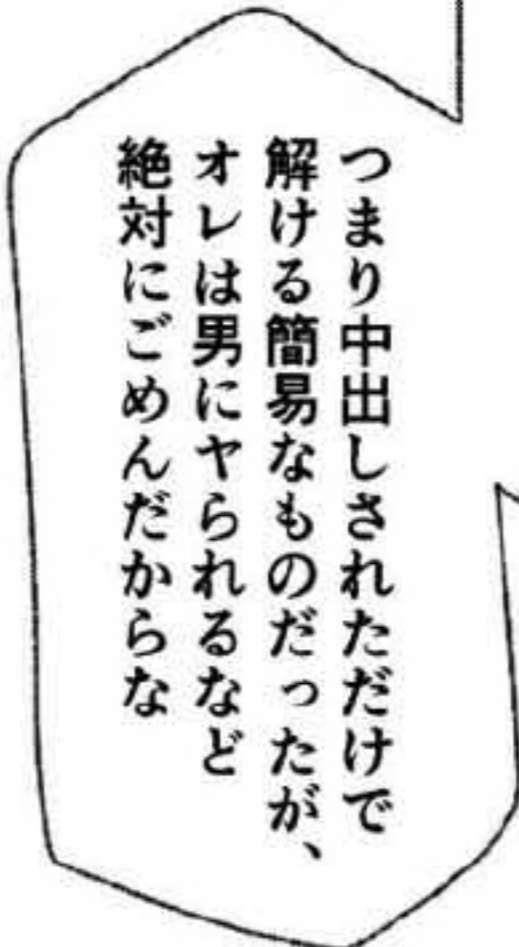 つまり中出しされただけで
解ける簡易なものだったが、
オレは男にヤられるなど
絶対にごめんだからな